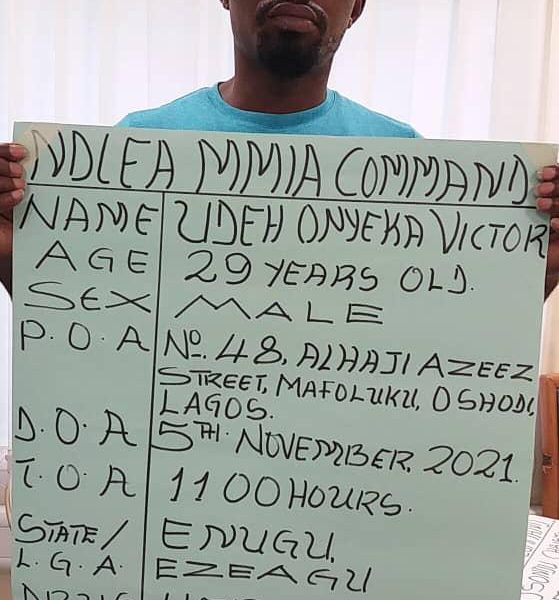 NDLEA MMIA COMMAND
NAME UDEH ONYEKA VICTOR
AGE 29 YEARS OLD.
SEX MALE
P.O.A NO. 48, ALHAJI AZEEZ
STREET, MAFOLUKU, OSHODI,
LAGOS.
D.O.A 5TH. NOVEMBER, 2021.
T.O.A 1100 HOURS.
STATE/ ENUGU,
L.G.A. EZEAGU